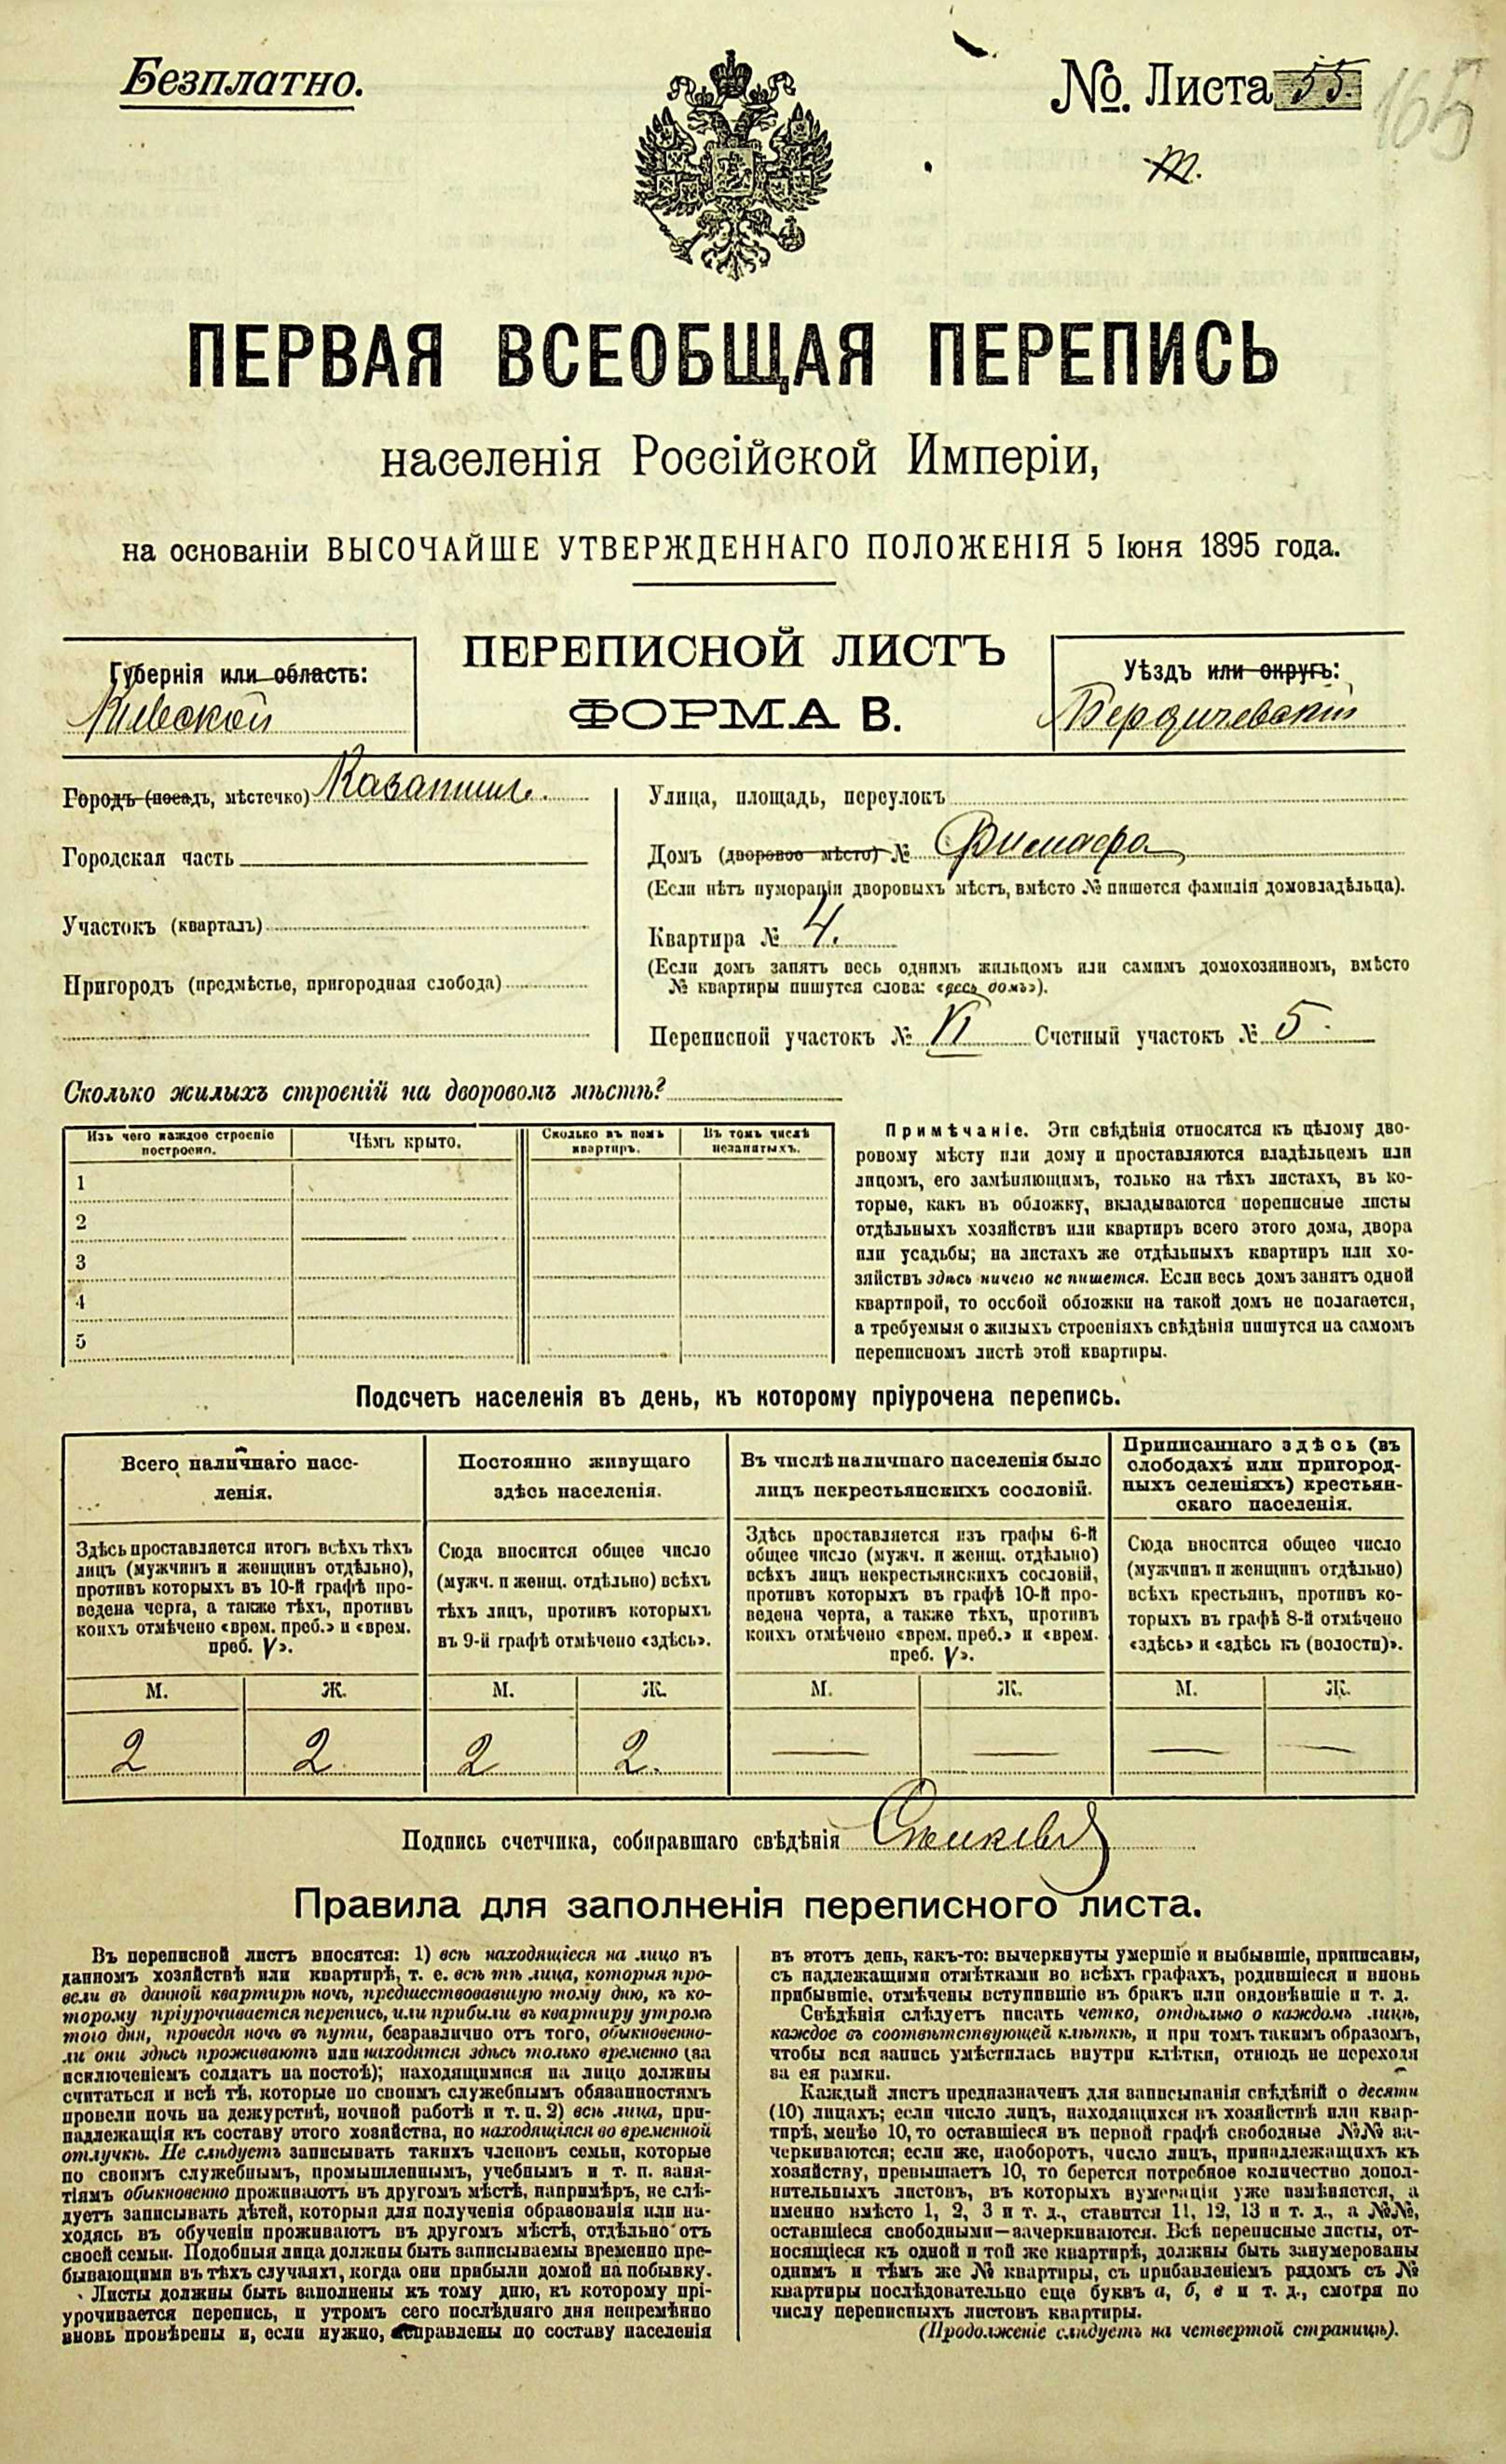 Безплатно.
№. Листа 55.
165
ПЕРВАЯ ВСЕОБЩАЯ ПЕРЕПИСЬ
населенія Россійской Имперіи,
на основаніи ВЫСОЧАЙШЕ УТВЕРЖДЕННАГО ПОЛОЖЕНІЯ 5 Іюня 1895 года.
ПЕРЕПИСНОЙ ЛИСТЪ
ФОРМА В.
Губернія или область:
Кіевской
Уѣздъ или округъ:
Бердичевскій
Городъ (посадъ, мѣстечко) Казатинъ.
Городская часть
Участокъ (кварталъ)
Пригородъ (предмѣстье, пригородная слобода)
Улица, площадь, переулокъ
Домъ (дворовое мѣсто) №
(Если нѣтъ нумораціи дворовыхъ мѣстъ, вмѣсто № пишется фамилія домовладѣльца).
Квартира № 4.
(Если домъ занятъ весь однимъ жильцомъ или самимъ домохозяиномъ, вмѣсто
№ квартиры пишутся слова: «весь домъ»).
Переписной участокъ № VI Счетный участокъ № 5.
Сколько жилыхъ строеній на дворовомъ мѣстѣ?
Изъ чего каждое строеніе
построено.
Чѣмъ крыто.
Сколько въ немъ
квартиръ.
Въ томъ числѣ
незанятыхъ.
1
2
3
4
5
Примѣчаніе. Эти свѣдѣнія относятся къ цѣлому дво-
ровому мѣсту или дому и проставляются владѣльцемъ или
лицомъ, его замѣняющимъ, только на тѣхъ листахъ, въ ко-
торые, какъ въ обложку, вкладываются переписные листы
отдѣльныхъ хозяйствъ или квартиръ всего этого дома, двора
или усадьбы; на листахъ же отдѣльныхъ квартиръ или хо-
зяйствъ здѣсь ничего не пишется. Если весь домъ занятъ одной
квартирой, то особой обложки на такой домъ не полагается,
а требуемыя о жилыхъ строеніяхъ свѣдѣнія пишутся на самомъ
переписномъ листѣ этой квартиры.
Подсчетъ населенія въ день, къ которому пріурочена перепись.
Всего наличнаго насе-
ленія.
Постоянно живущаго
здѣсь населенія.
Въ числѣ наличнаго населенія было
лицъ некрестьянскихъ сословій.
Приписаннаго здѣсь (въ
слободахъ или пригород-
ныхъ селеніяхъ) крестьян-
скаго населенія.
Здѣсь проставляется итогъ всѣхъ тѣхъ
лицъ (мужчинъ и женщинъ отдѣльно),
противъ которыхъ въ 10-й графѣ про-
ведена черта, а также тѣхъ, противъ
коихъ отмѣчено «врем. преб.» и «врем.
преб. V».
Сюда вносится общее число
(мужч. и женщ. отдѣльно) всѣхъ
тѣхъ лицъ, противъ которыхъ
въ 9-й графѣ отмѣчено «здѣсь».
Здѣсь проставляется изъ графы 6-й
общее число (мужч. и женщ. отдѣльно)
всѣхъ лицъ некрестьянскихъ сословій,
противъ которыхъ въ графѣ 10-й про-
ведена черта, а также тѣхъ, противъ
коихъ отмѣчено «врем. преб.» и «врем.
преб. V».
Сюда вносится общее число
(мужчинъ и женщинъ отдѣльно)
всѣхъ крестьянъ, противъ ко-
торыхъ въ графѣ 8-й отмѣчено
«здѣсь» и «здѣсь къ (волости)».
М. Ж. М. Ж. М. Ж. М. Ж.
2 2. 2 2. — — — —
Подпись счетчика, собиравшаго свѣдѣнія
Правила для заполненія переписного листа.
Въ переписной листъ вносятся: 1) всѣ находящіеся на лицо въ
данномъ хозяйствѣ или квартирѣ, т. е. всѣ тѣ лица, которыя про-
вели въ данной квартирѣ ночь, предшествовавшую тому дню, къ ко-
торому пріурочивается перепись, или прибыли въ квартиру утромъ
того дня, проведя ночь въ пути, безразлично отъ того, обыкновенно-
ли они здѣсь проживаютъ или находятся здѣсь только временно (за
исключеніемъ солдатъ на постоѣ); находящимися на лицо должны
считаться и всѣ тѣ, которые по своимъ служебнымъ обязанностямъ
провели ночь на дежурствѣ, ночной работѣ и т. п. 2) всѣ лица, при-
надлежащія къ составу этого хозяйства, но находящіяся во временной
отлучкѣ. Не слѣдуетъ записывать такихъ членовъ семьи, которые
по своимъ служебнымъ, промышленнымъ, учебнымъ и т. п. заня-
тіямъ обыкновенно проживаютъ въ другомъ мѣстѣ, напримѣръ, не слѣ-
дуетъ записывать дѣтей, которыя для полученія образованія или на-
ходясь въ обученіи проживаютъ въ другомъ мѣстѣ, отдѣльно отъ
своей семьи. Подобныя лица должны быть записываемы временно пре-
бывающими въ тѣхъ случаяхъ, когда они прибыли домой на побывку.
Листы должны быть заполнены къ тому дню, къ которому прі-
урочивается перепись, и утромъ сего послѣдняго дня непремѣнно
вновь провѣрены и, если нужно, исправлены по составу населенія
въ этотъ день, какъ-то: вычеркнуты умершіе и выбывшіе, приписаны,
съ надлежащими отмѣтками во всѣхъ графахъ, родившіеся и вновь
прибывшіе, отмѣчены вступившіе въ бракъ или овдовѣвшіе и т. д.
Свѣдѣнія слѣдуетъ писать четко, отдѣльно о каждомъ лицѣ,
каждое въ соотвѣтствующей клѣткѣ, и при томъ такимъ образомъ,
чтобы вся запись умѣстилась внутри клѣтки, отнюдь не переходя
за ея рамки.
Каждый листъ предназначенъ для записыванія свѣдѣній о десяти
(10) лицахъ; если число лицъ, находящихся въ хозяйствѣ или квар-
тирѣ, менѣе 10, то оставшіеся въ первой графѣ свободные №№ за-
черкиваются; если же, наоборотъ, число лицъ, принадлежащихъ къ
хозяйству, превышаетъ 10, то берется потребное количество допол-
нительныхъ листовъ, въ которыхъ нумерація уже измѣняется, а
именно вмѣсто 1, 2, 3 и т. д., ставится 11, 12, 13 и т. д., а №№,
оставшіеся свободными—зачеркиваются. Всѣ переписные листы, от-
носящіеся къ одной и той же квартирѣ, должны быть занумерованы
однимъ и тѣмъ же № квартиры, съ прибавленіемъ рядомъ съ №
квартиры послѣдовательно еще буквъ а, б, в и т. д., смотря по
числу переписныхъ листовъ квартиры.
(Продолженіе слѣдуетъ на четвертой страницѣ).